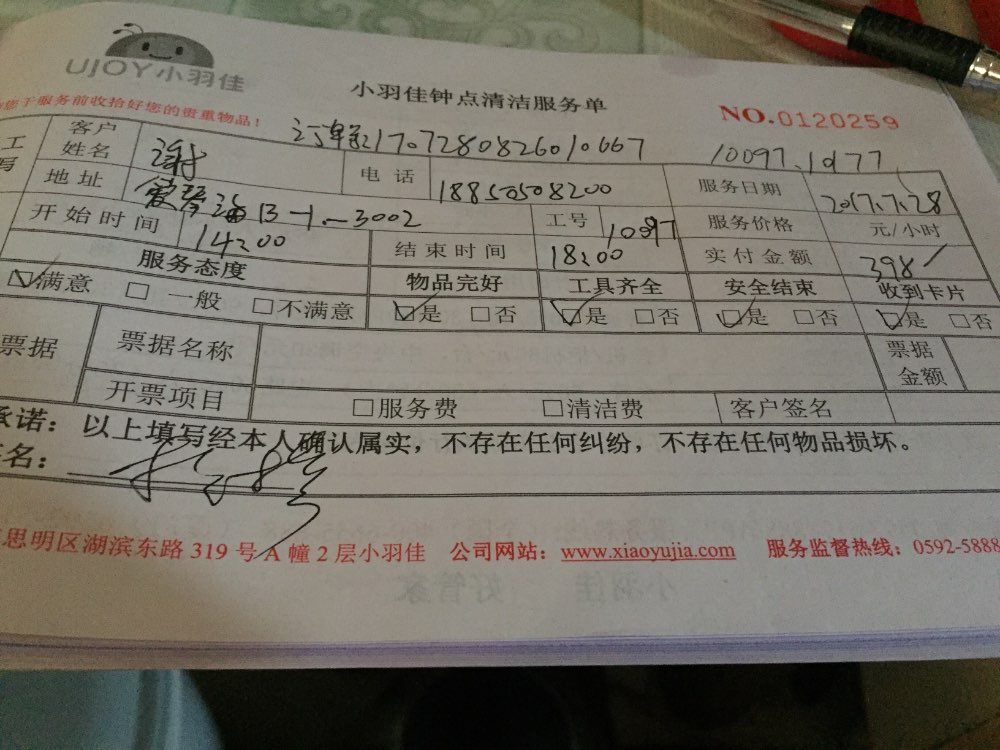 UJOY小羽佳
小羽佳钟点清洁服务单
您于服务前收拾好您的贵重物品！
NO.0120259
订单170728082601066 7
10097.10177
客户姓名 谢 电话 18850508200 服务日期 2017.7.28
地址 海B-1-3002 工号 10097 服务价格 元/小时
开始时间 14:00 结束时间 18:00 实付金额 398
服务态度 物品完好 工具齐全 安全结束 收到卡片
☑满意 □一般 □不满意 ☑是 □否 ☑是 □否 ☑是 □否 ☑是 □否
票据 票据名称 票据金额
开票项目 □服务费 □清洁费 客户签名
承诺：以上填写经本人确认属实，不存在任何纠纷，不存在任何物品损坏。
名：
思明区湖滨东路 319 号 A 幢 2 层小羽佳 公司网站：www.xiaoyujia.com 服务监督热线：0592-5888